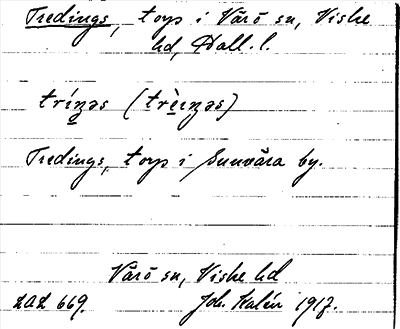 Tredings, torp i Värö sn, Viske
hd, Hall. l.
trízəs (trèizəs)
Tredings, torp i Sunvära by.
Värö sn, Viske hd
Joh. Kalén 1917.